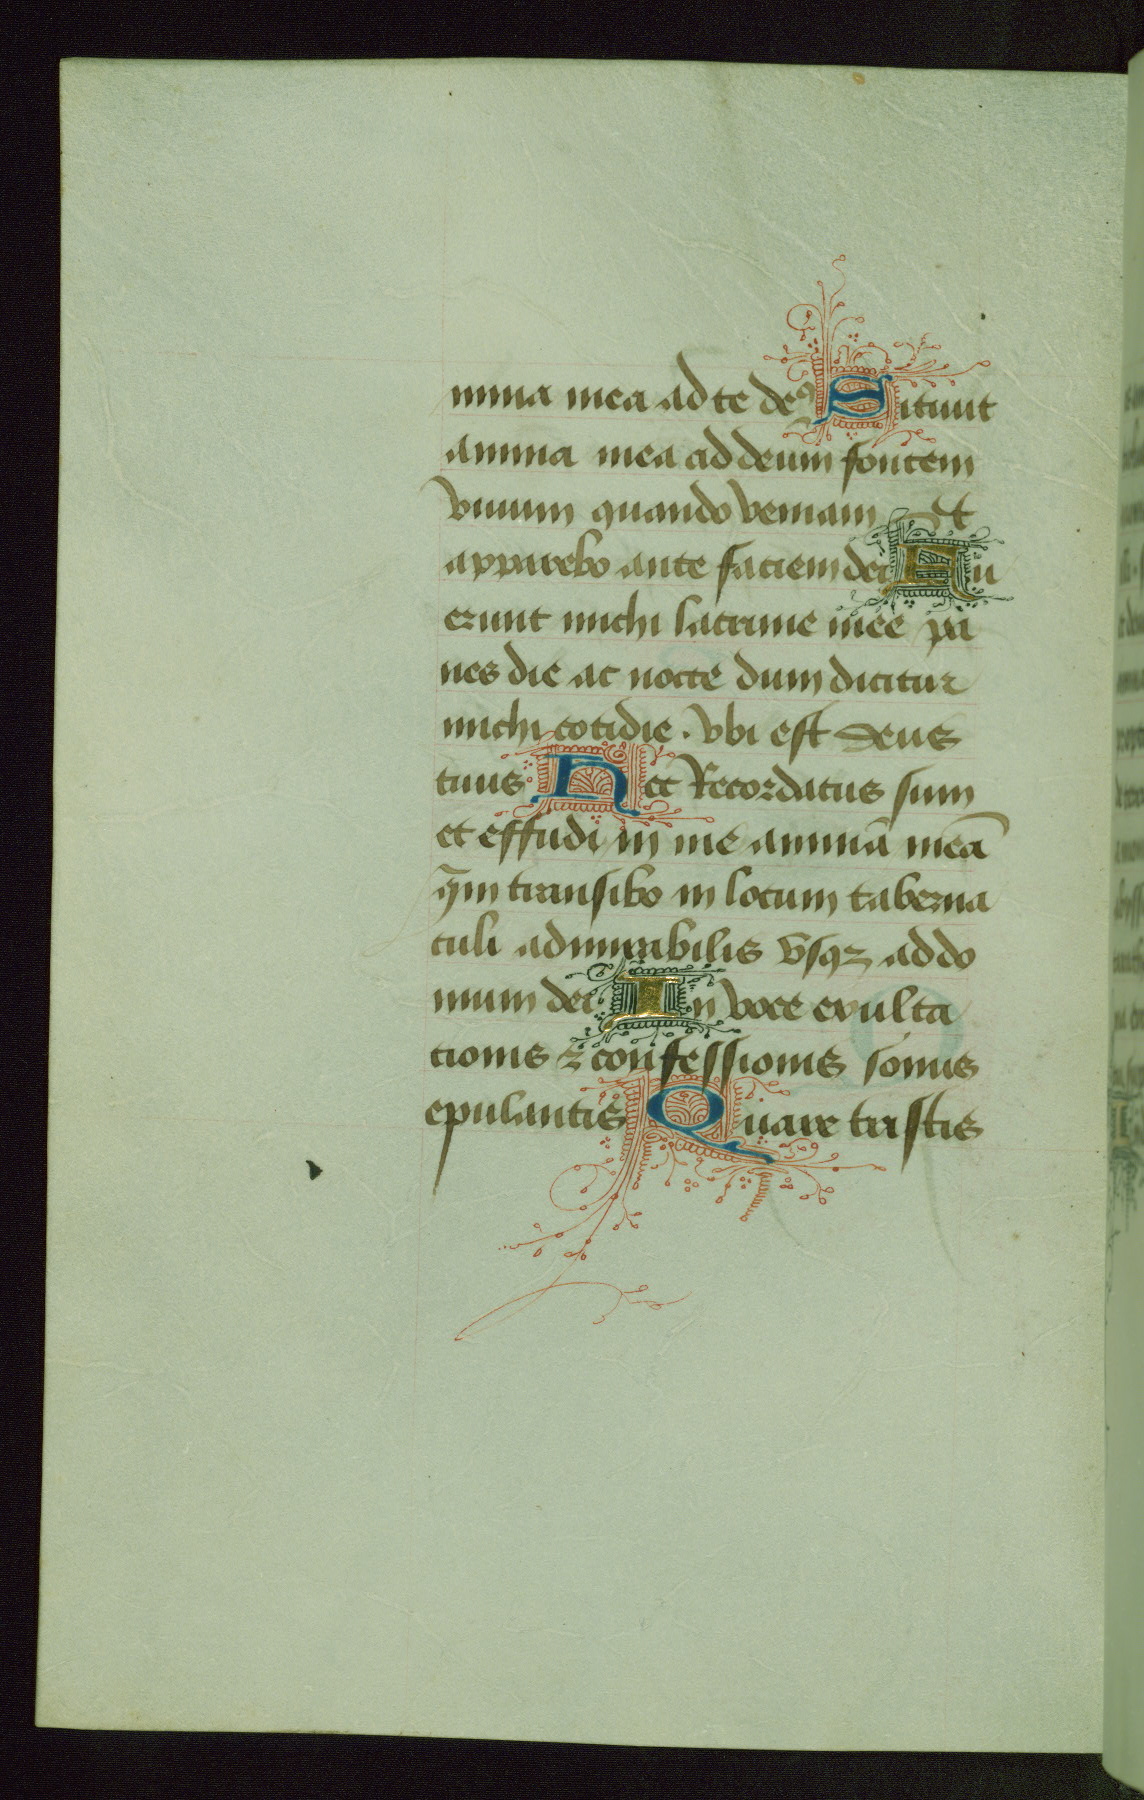 nima mea ad te deꝰ Sitiuit
anima mea ad deum fontem
viuum quando veniam Et
apparebo ante faciem dei Fu
erunt michi lacrime mee pa
nes die ac nocte dum dicitur
michi cotidie . vbi est deus
tuus Hec Recordatus sum
et effudi in me animā meā
qm̄ transibo in locum taberna
culi admirabilis vsqꝫ ad do
mum dei In voce exulta
tionis ⁊ confessionis sonus
epulantis Quare tristis